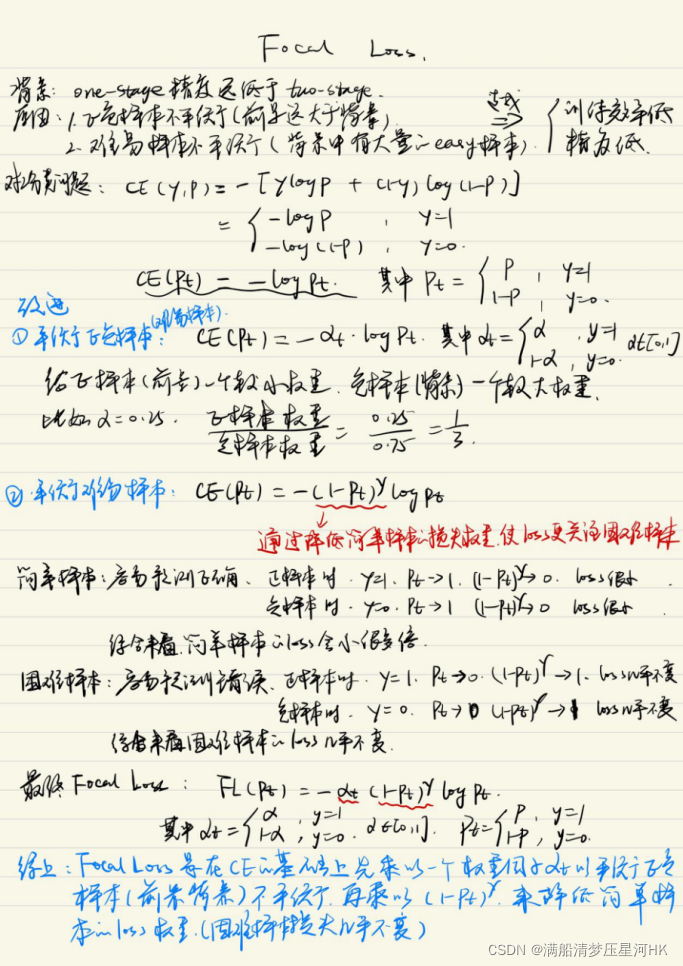 Focal Loss.
背景: one-stage 精度远低于 two-stage.
原因: 1. 正负样本不平衡 (前景远大于背景)
2. 难易样本不平衡 (背景中有大量的easy样本).
造成 => { 训练效率低 精度低.
对分类问题: CE(y,p) = -[ylogp + (1-y)log(1-p)]
= { -logp , y=1
-log(1-p) , y=0.
CE(Pt) = -logPt. 其中 Pt = { P , y=1
1-P , y=0.
改进
① 平衡正负样本 (难易样本): CE(Pt) = -αt·logPt. 其中 αt = { α , y=1
1-α , y=0. α∈[0,1]
给正样本(前景)一个较小权重, 负样本(背景)一个较大权重.
比如 α=0.25. 正样本权重/负样本权重 = 0.25/0.75 = 1/3.
② 平衡难易样本: CE(Pt) = -(1-Pt)^γ log pt
通过降低简单样本的损失权重, 使loss更关注困难样本
简单样本: 容易预测正确. 正样本时. y=1. Pt→1. (1-Pt)^γ→0. loss很小
负样本时. y=0. Pt→1 (1-Pt)^γ→0 loss很小
综合来看, 简单样本的loss会小很多倍.
困难样本: 容易预测错误. 正样本时. y=1. Pt→0. (1-Pt)^γ→1. loss几乎不变
负样本时. y=0. Pt→0 (1-Pt)^γ→1 loss几乎不变
综合来看困难样本的loss几乎不变.
最终 Focal Loss: FL(Pt) = -αt (1-Pt)^γ log pt.
其中 αt = { α , y=1 1-α , y=0. α∈[0,1]. Pt = { P , y=1 1-P , y=0.
综上: Focal Loss 是在CE的基础上先乘以一个权重因子αt以平衡正负
样本(前景背景)不平衡, 再乘以(1-Pt)^γ, 来降低简单样
本的loss权重.(困难样本损失几乎不变)
CSDN @满船清梦压星河HK